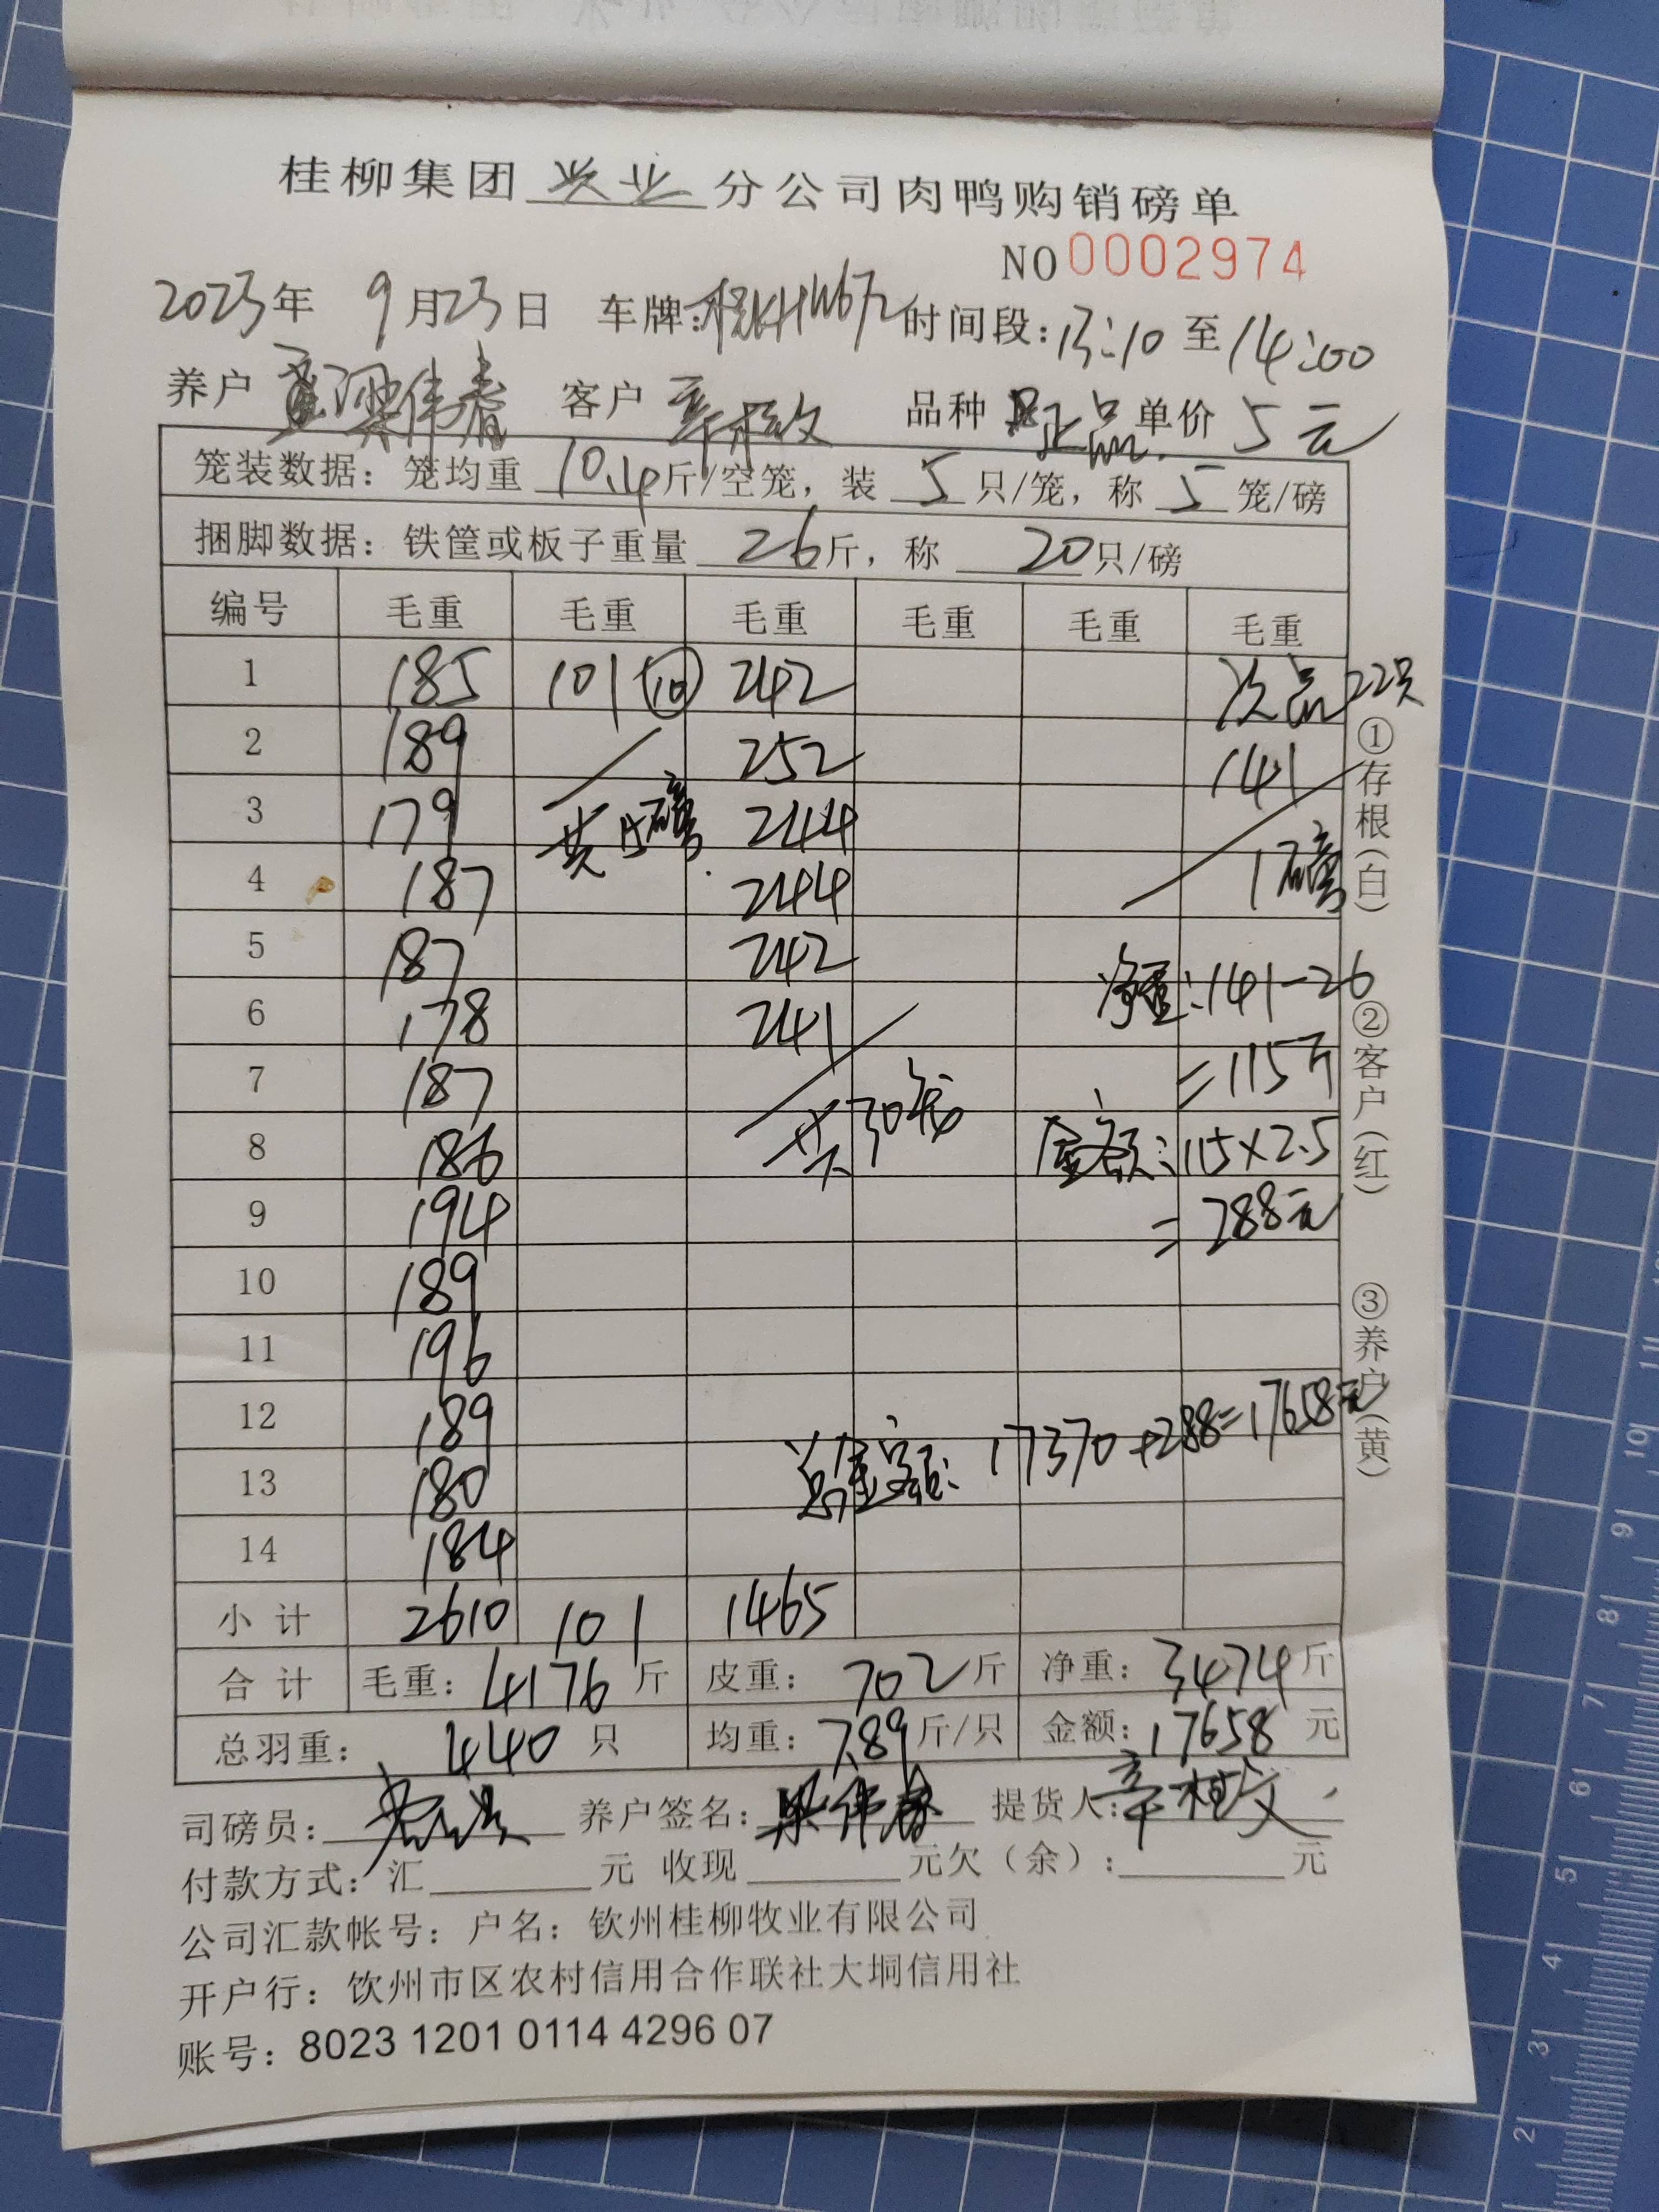 桂柳集团 兴业 分公司肉鸭购销磅单
NO 0002974
2023年 9月23日 车牌: 时间段:13:10 至 14:00
养户 梁伟春 客户 辛桂文 品种 正品 单价 5元
笼装数据: 笼均重 10.4 斤/空笼, 装 5 只/笼, 称 5 笼/磅
捆脚数据: 铁筐或板子重量 26 斤, 称 20 只/磅
编号 毛重 毛重 毛重 毛重 毛重 毛重
1 185 101 (10) 242 次品22只
2 189 252 141
3 179 共15磅 244
4 187 244 1磅
5 187 242 净重:141-26
6 178 241
7 187 共30笼 =115斤
8 186 金额:115×2.5
9 194 =288元
10 189
11 196
12 189
13 180 总金额: 17370+288=17658元
14 184
小计 2610 101 1465
合计 毛重: 4176 斤 皮重: 702 斤 净重: 3474 斤
总羽重: 440 只 均重: 7.89 斤/只 金额: 17658 元
司磅员: 养户签名: 梁伟春 提货人: 辛桂文
付款方式: 汇 元 收现 元欠(余): 元
公司汇款帐号: 户名: 钦州桂柳牧业有限公司
开户行: 钦州市区农村信用合作联社大垌信用社
账号: 8023 1201 0114 4296 07
①存根(白) ②客户(红) ③养户(黄)